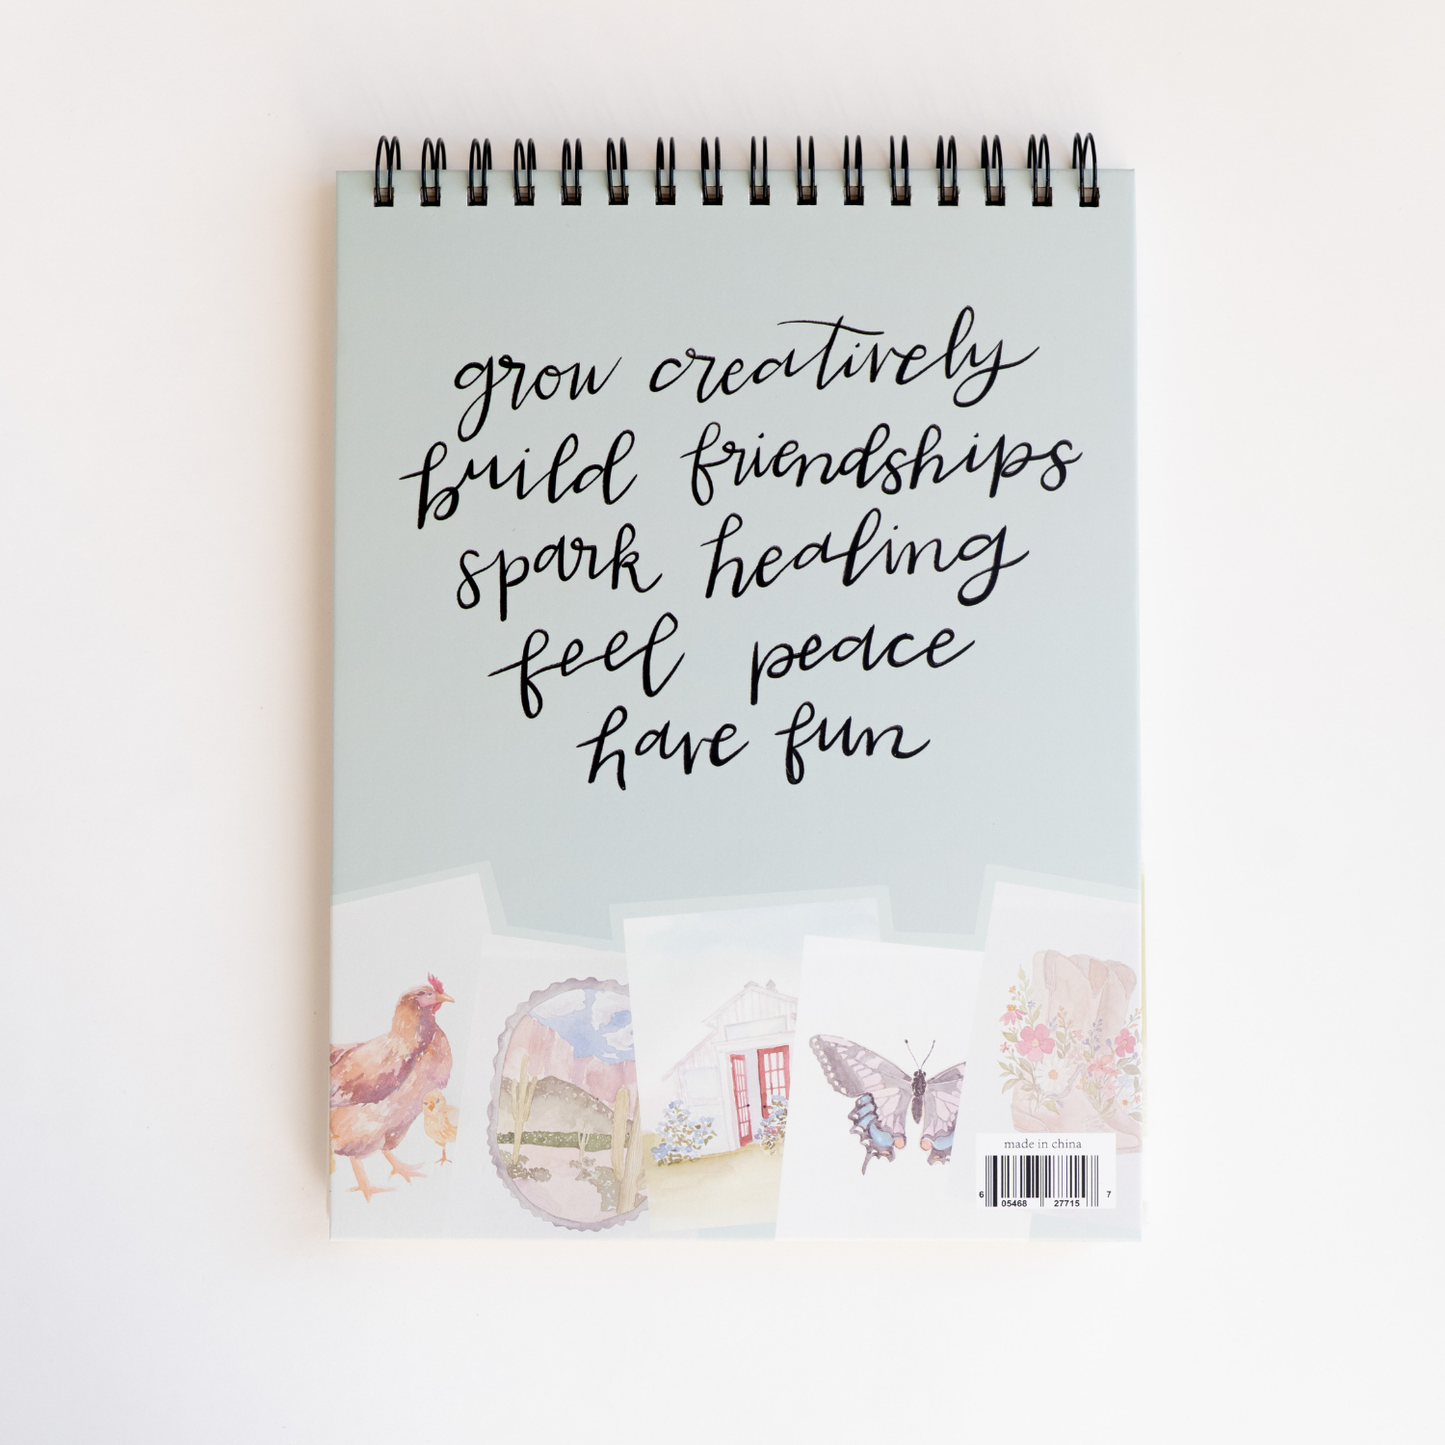 grow creatively
build friendships
spark healing
feel peace
have fun
made in china
6 05468 27715 7